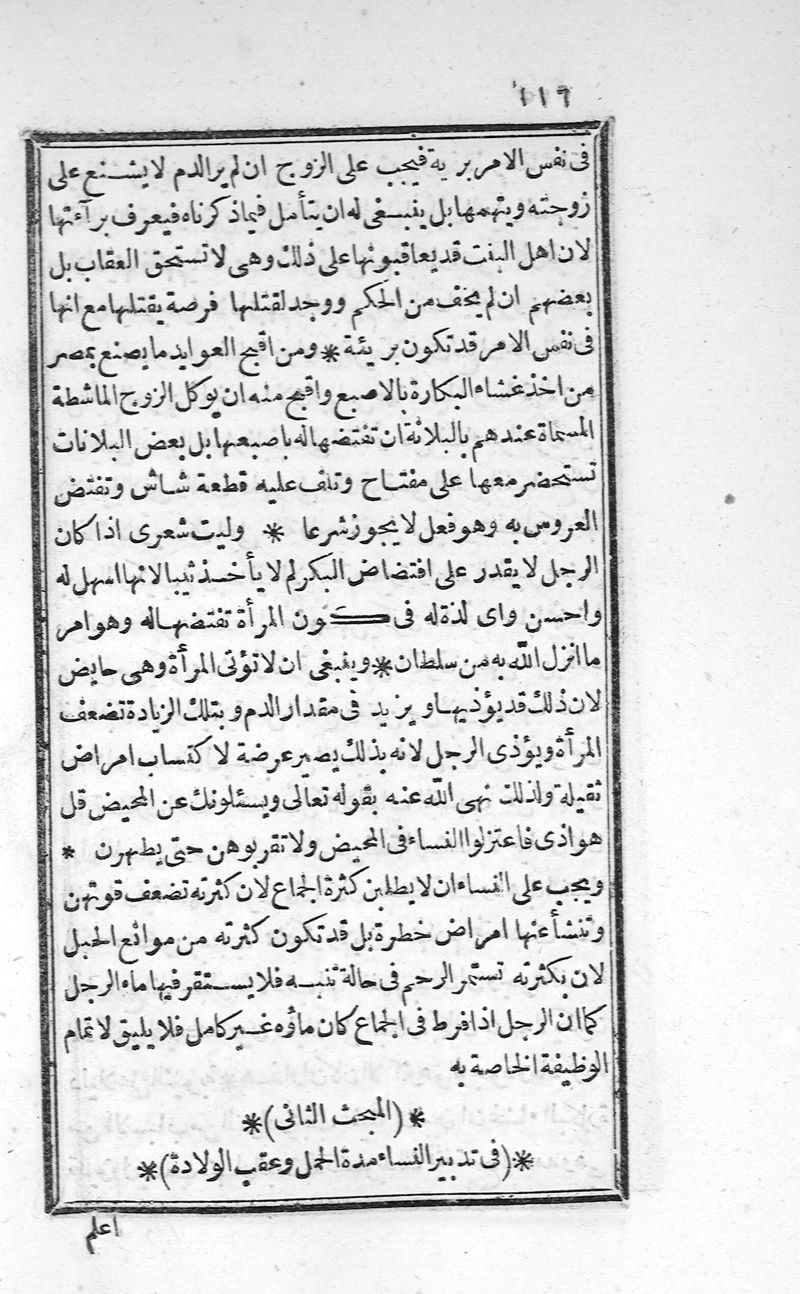 ١١٦
فى نفس الامر برية فيجب على الزوج ان لم ير الدم لا يشنع على
زوجته ويتهمها بل ينبغى له ان يتأمل فيما ذكرناه فيعرف برآءتها
لان اهل البنت قد يعاقبونها على ذلك وهى لا تستحق العقاب بل
بعضهم ان لم يخف من الحكم ووجد لقتلها فرصة يقتلها مع انها
فى نفس الامر قد تكون بريئة * ومن اقبح العوايد ما يصنع بمصر
من اخذ غشاء البكارة بالاصبع واقبح منه ان يوكل الزوج الماشطة
المسماة عندهم بالبلانة ان تفتضها له باصبعها بل بعض البلانات
تستحضر معها على مفتاح وتلف عليه قطعة شاش وتفتض
العروس به وهو فعل لا يجوز شرعا * وليت شعرى اذا كان
الرجل لا يقدر على افتضاض البكر لم لا يأخذ ثيبا لانها اسهل له
واحسن واى لذة له فى كون المرأة تفتضها له وهو امر
ما انزل الله به من سلطان * وينبغى ان لا تؤتى المرأة وهى حايض
لان ذلك قد يؤذيها ويزيد فى مقدار الدم وبتلك الزيادة تضعف
المرأة ويؤذى الرجل لانه بذلك يصير عرضة لاكتساب امراض
ثقيلة ولذلك نهى الله عنه بقوله تعالى ويسئلونك عن المحيض قل
هو اذى فاعتزلوا النساء فى المحيض ولا تقربوهن حتى يطهرن *
ويجب على النساء ان لا يطلبن كثرة الجماع لان كثرته تضعف قوتهن
وتنشأ عنها امراض خطرة بل قد تكون كثرته من موانع الحبل
لان بكثرته تستمر الرحم فى حالة تنبه فلا يستقر فيها ماء الرجل
كما ان الرجل اذا افرط فى الجماع كان ماؤه غير كامل فلا يليق لاتمام
الوظيفة الخاصة به
* (المبحث الثانى) *
* (فى تدبير النساء مدة الحمل وعقب الولادة) *
اعلم